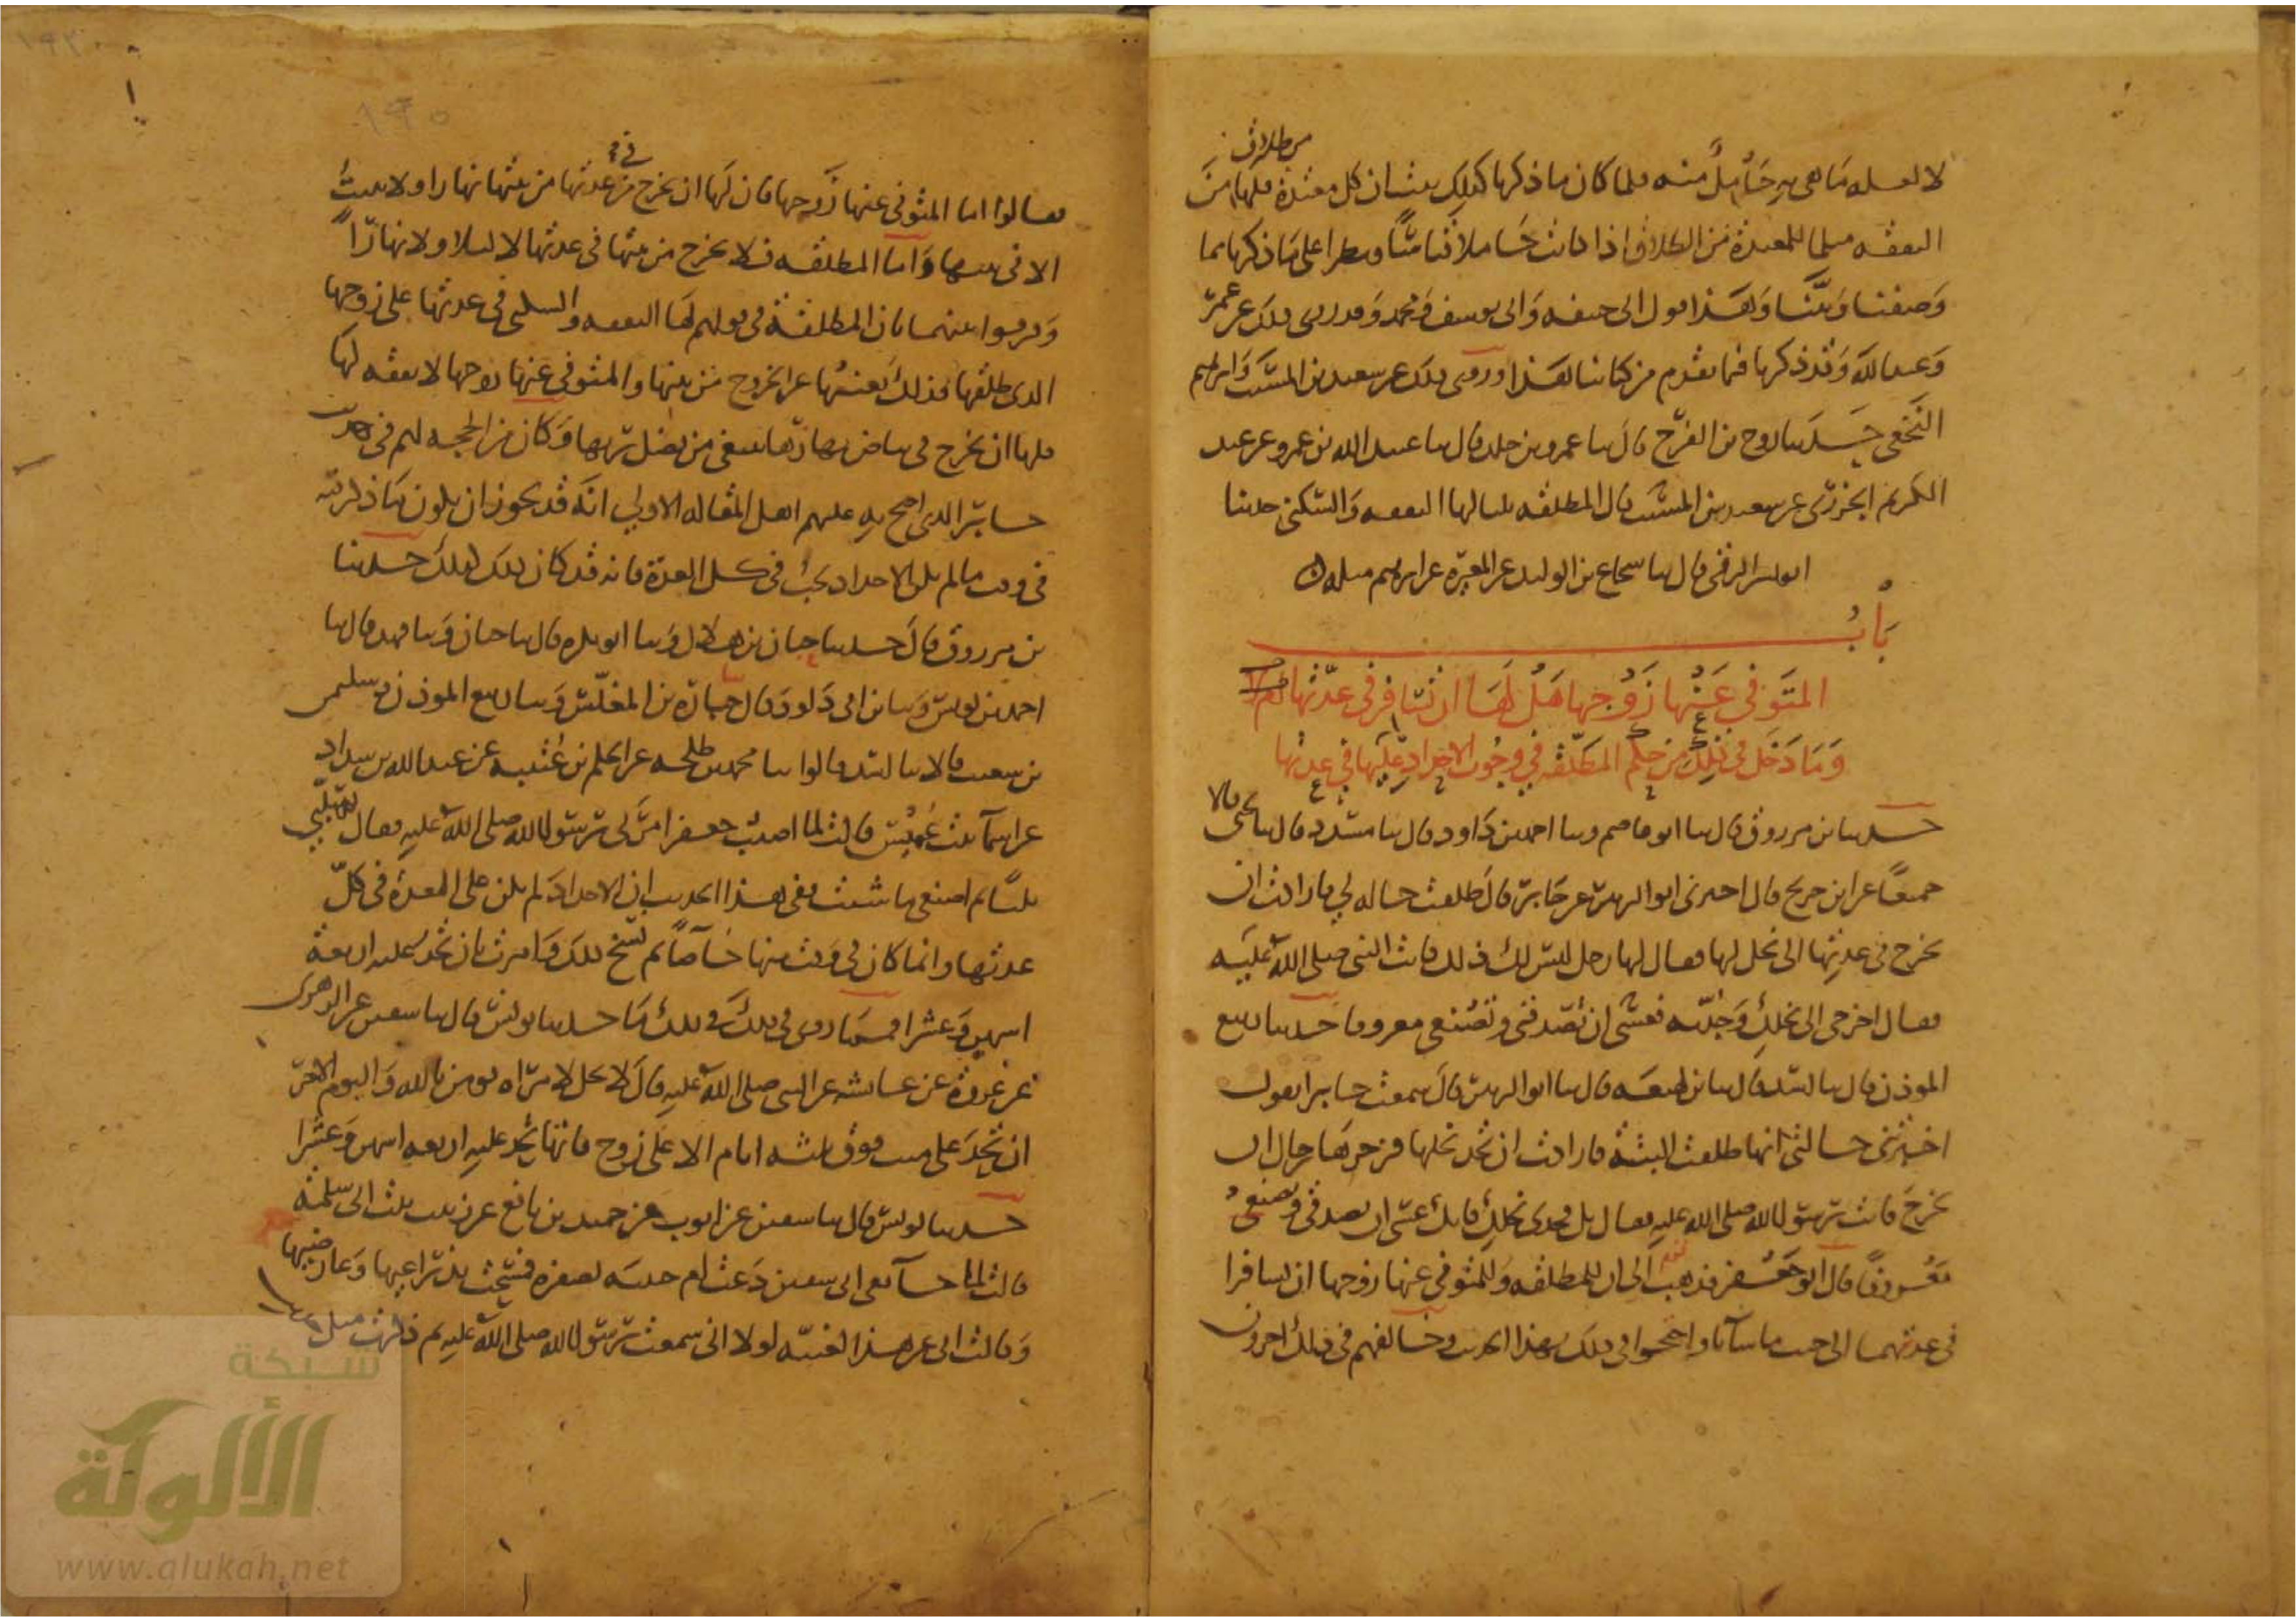 لا لعله ما هي به حامل منه فلما كان ما ذكرنا كذلك ثبت ان كل معتدة من طلاق فلها من
النفقة مثل ما للمعتدة من الطلاق اذا كانت حاملا قياسا ونظرا على ما ذكرنا مما
وصفنا وبينا وهذا قول ابي حنيفة وابي يوسف ومحمد وقد روي ذلك عن عمر
وعبد الله وقد ذكرنا فيما تقدم من كتابنا هذا وروي ذلك عن سعيد بن المسيب وابراهيم
النخعي حدثنا روح بن الفرج قال ثنا عمرو بن خالد قال ثنا عبيد الله بن عمرو عن عبد
الكريم الجزري عن سعيد بن المسيب قال المطلقة ثلثا لها النفقة والسكنى حدثنا
ابو بشر الرقي قال ثنا شجاع بن الوليد عن المغيرة عن ابراهيم مثله
باب
المتوفى عنها زوجها هل لها ان تسافر في عدتها ام لا
وما دخل في ذلك من حكم المطلقة في وجوب الاحداد عليها في عدتها
حدثنا بن مرزوق قال ثنا ابو عاصم وثنا احمد بن داود قال ثنا مسدد قال ثنا يحيى قالا
جميعا عن ابن جريج قال اخبرني ابو الزبير عن جابر قال طلقت خالة لي فارادت ان
تخرج في عدتها الى نخل لها فقال لها رجل ليس لك ذلك فاتت النبي صلى الله عليه
فقال اخرجي الى نخلك وجديه فعسى ان تصدقي وتصنعي معروفا حدثنا ربيع
الموذن قال ثنا اسد قال ثنا بن لهيعة قال ثنا ابو الزبير قال سمعت جابرا يقول
اخبرتني خالتي انها طلقت البتة فارادت ان تجد نخلها فزجرها رجال ان
تخرج فاتت رسول الله صلى الله عليه فقال بل فجدي نخلك فانك عسى ان تصدقي وتصنعي
معروفا قال ابو جعفر فذهب قوم الى ان للمطلقة وللمتوفى عنها زوجها ان تسافرا
في عدتهما الى حيث ما شاتا واحتجوا في ذلك بهذا الحديث وخالفهم في ذلك اخرون
فقالوا اما المتوفى عنها زوجها فان لها ان تخرج في عدتها من بيتها نهارا ولا تبيت
الا في بيتها واما المطلقة فلا تخرج من بيتها في عدتها لا ليلا ولا نهارا
وفرقوا بينهما بان المطلقة في قولهم لها النفقة والسكنى في عدتها على زوجها
الذي طلقها فذلك يغنيها عن الخروج من بيتها والمتوفى عنها زوجها لا نفقة لها
فلها ان تخرج في بياض نهارها تبتغي من فضل ربها وكان من الحجة لهم في حديث
جابر الذي احتج به عليهم اهل المقالة الاولى انه قد يجوز ان يكون ما ذكر فيه
في وقت ما لم يكن الاحداد يجب في كل العدة فانه قد كان ذلك كذلك حدثنا
بن مرزوق قال حدثنا حبان بن هلال وثنا ابو بكرة قال ثنا حبان وثنا فهد قال ثنا
احمد بن يونس وثنا بن ابي داود قال جبارة بن المغلس وثنا ربيع الموذن وسليمن
بن شعيب قالا ثنا اسد قالوا ثنا محمد بن طلحة عن الحكم بن عتيبة عن عبد الله بن شداد
عن اسما بنت عميس قالت لما اصيب جعفر امرني رسول الله صلى الله عليه فقال تسلبي
ثلثا ثم اصنعي ما شئت ففي هذا الحديث ان الاحداد لم يكن على المعتدة في كل
عدتها وانما كان في وقت منها خاصا ثم نسخ ذلك وامرت بان تحد عليه اربعة
اشهر وعشرا فمما روي في ذلك ما حدثنا يونس قال ثنا سفين عن الزهري
عن عروة عن عائشة عن النبي صلى الله عليه قال لا يحل لامراة تومن بالله واليوم الاخر
ان تحد على ميت فوق ثلثة ايام الا على زوج فانها تحد عليه اربعة اشهر وعشرا
حدثنا يونس قال ثنا سفين عن ايوب عن حميد بن نافع عن زينب بنت ابي سلمة
قالت لما جا نعي ابي سفين دعت ام حبيبة بصفرة فمسحت بذراعيها وعارضيها
وقالت اني عن هذا لغنية لولا اني سمعت رسول الله صلى الله عليه ثم ذكرت مثل
شبكة
الألوكة
www.alukah.net